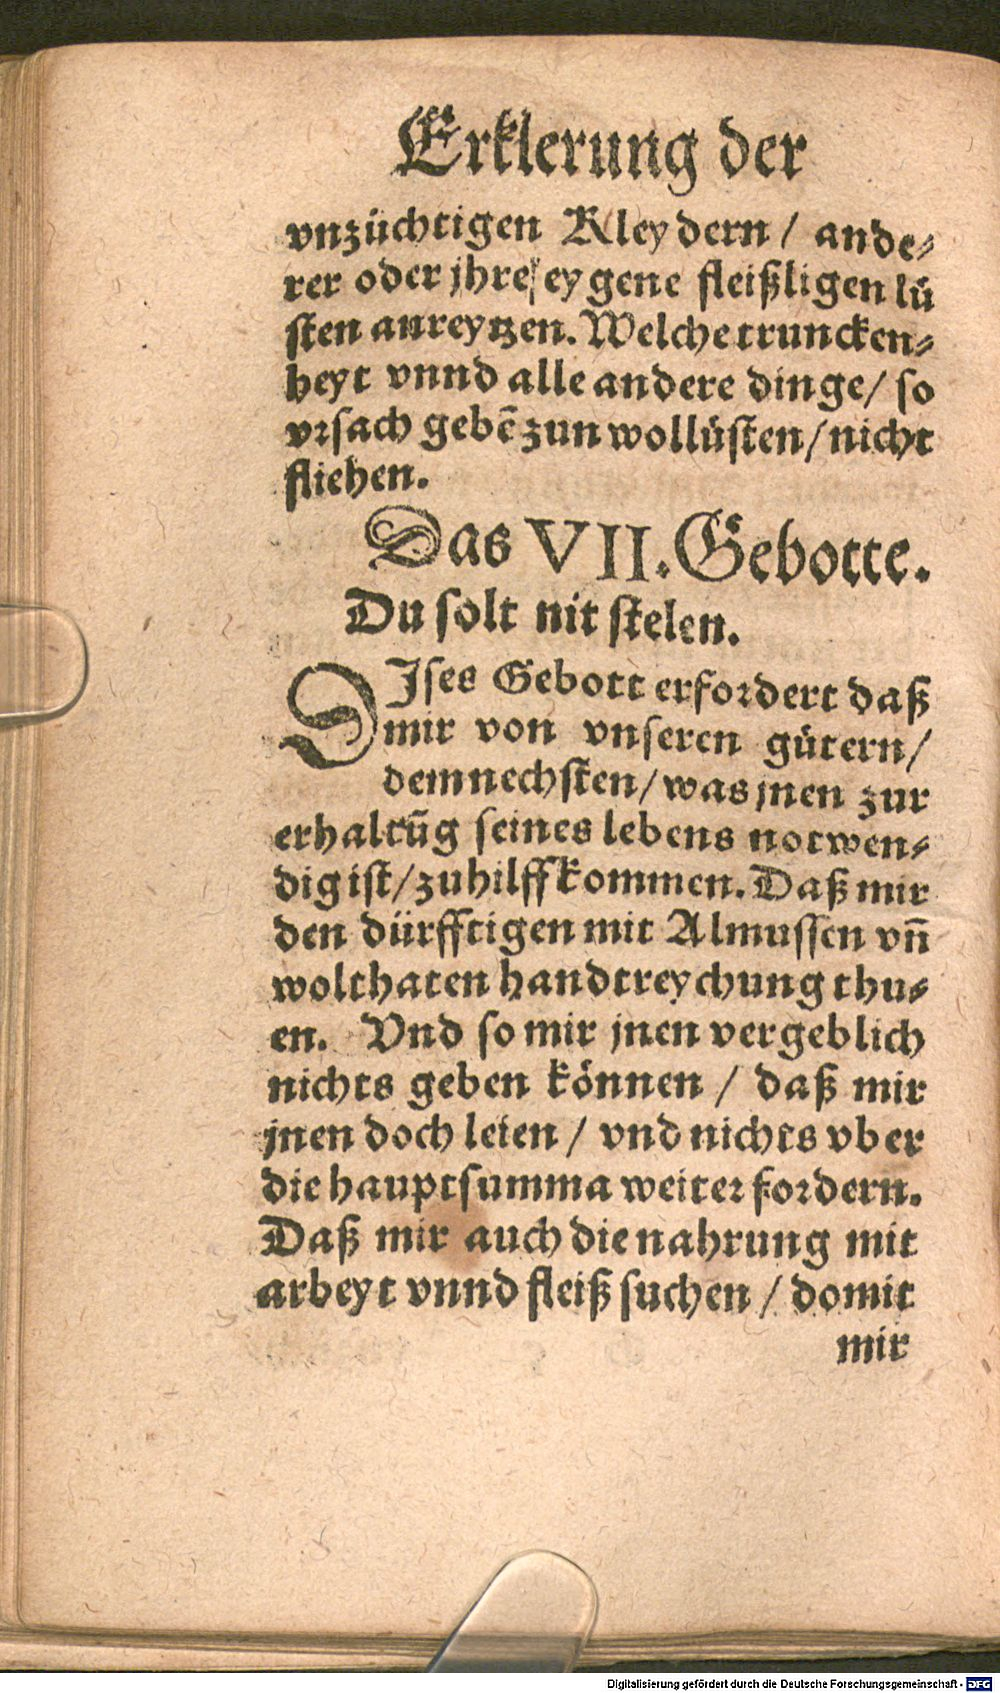 Erklerung der
vnzüchtigen Kleydern / ande⸗
rer oder jhre eygene fleißligen lü
sten anreytzen. Welche truncken⸗
heyt vnnd alle andere dinge / so
vrsach gebē zun wollüsten / nicht
fliehen.
Das VII. Gebotte.
Du solt nit stelen.
DIses Gebott erfordert daß
mir von vnseren gütern /
dem nechsten / was jnen zur
erhaltūg seines lebens notwen⸗
dig ist / zuhilff kommen. Daß mir
den dürfftigen mit Almussen vñ
wolthaten handtreychung thu⸗
en. Vnd so mir jnen vergeblich
nichts geben können / daß mir
jnen doch leien / vnd nichts vber
die hauptsumma weiter fordern.
Daß mir auch die nahrung mit
arbeyt vnnd fleiß suchen / domit
mir
Digitalisierung gefördert durch die Deutsche Forschungsgemeinschaft - DFG